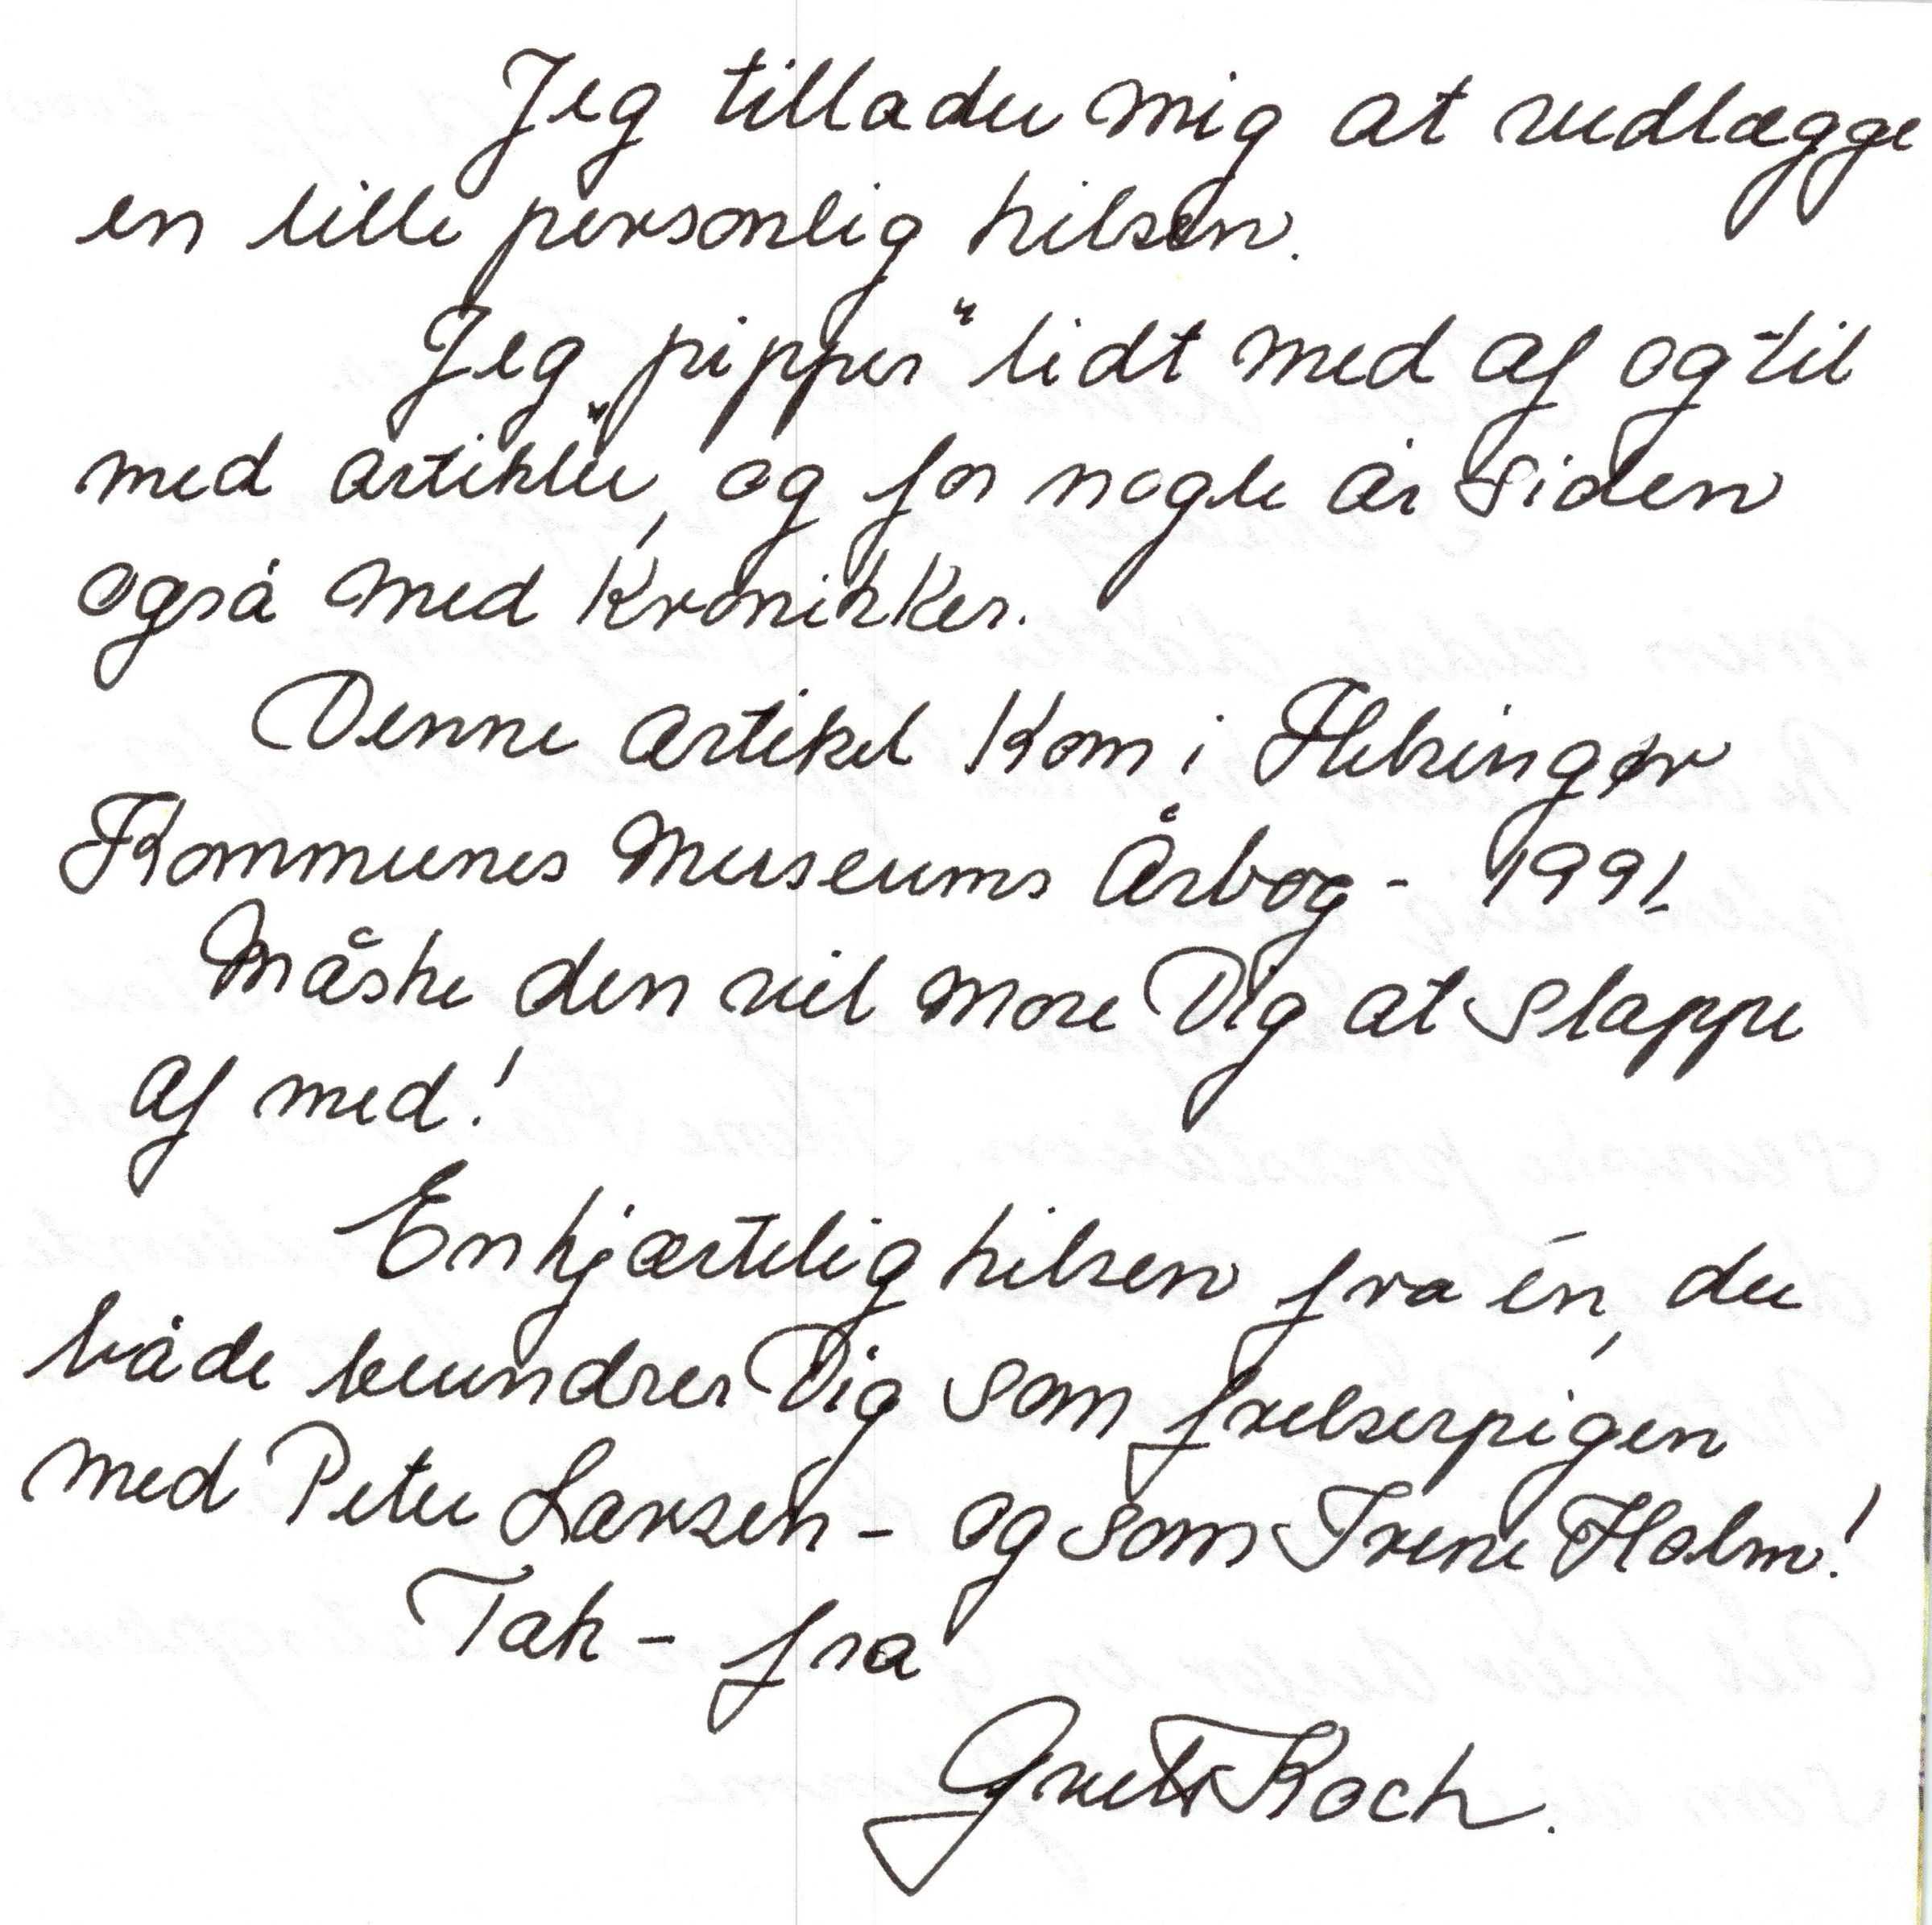 Jeg tillader mig at vedlægge
en lille personlig hilsen.
Jeg "pipper" lidt med af og til
med artikler, og for nogle år siden
også med kronikker.
Denne artikel kom i Helsingør
Kommunes Museums Årbog - 1991.
Måske den vil more Dig at slappe
af med!
En hjærtelig hilsen fra én, der
både beundrer Dig som frelserpigen
med Peter Larsen - og som Irene Holm!
Tak - fra
Grete Koch.